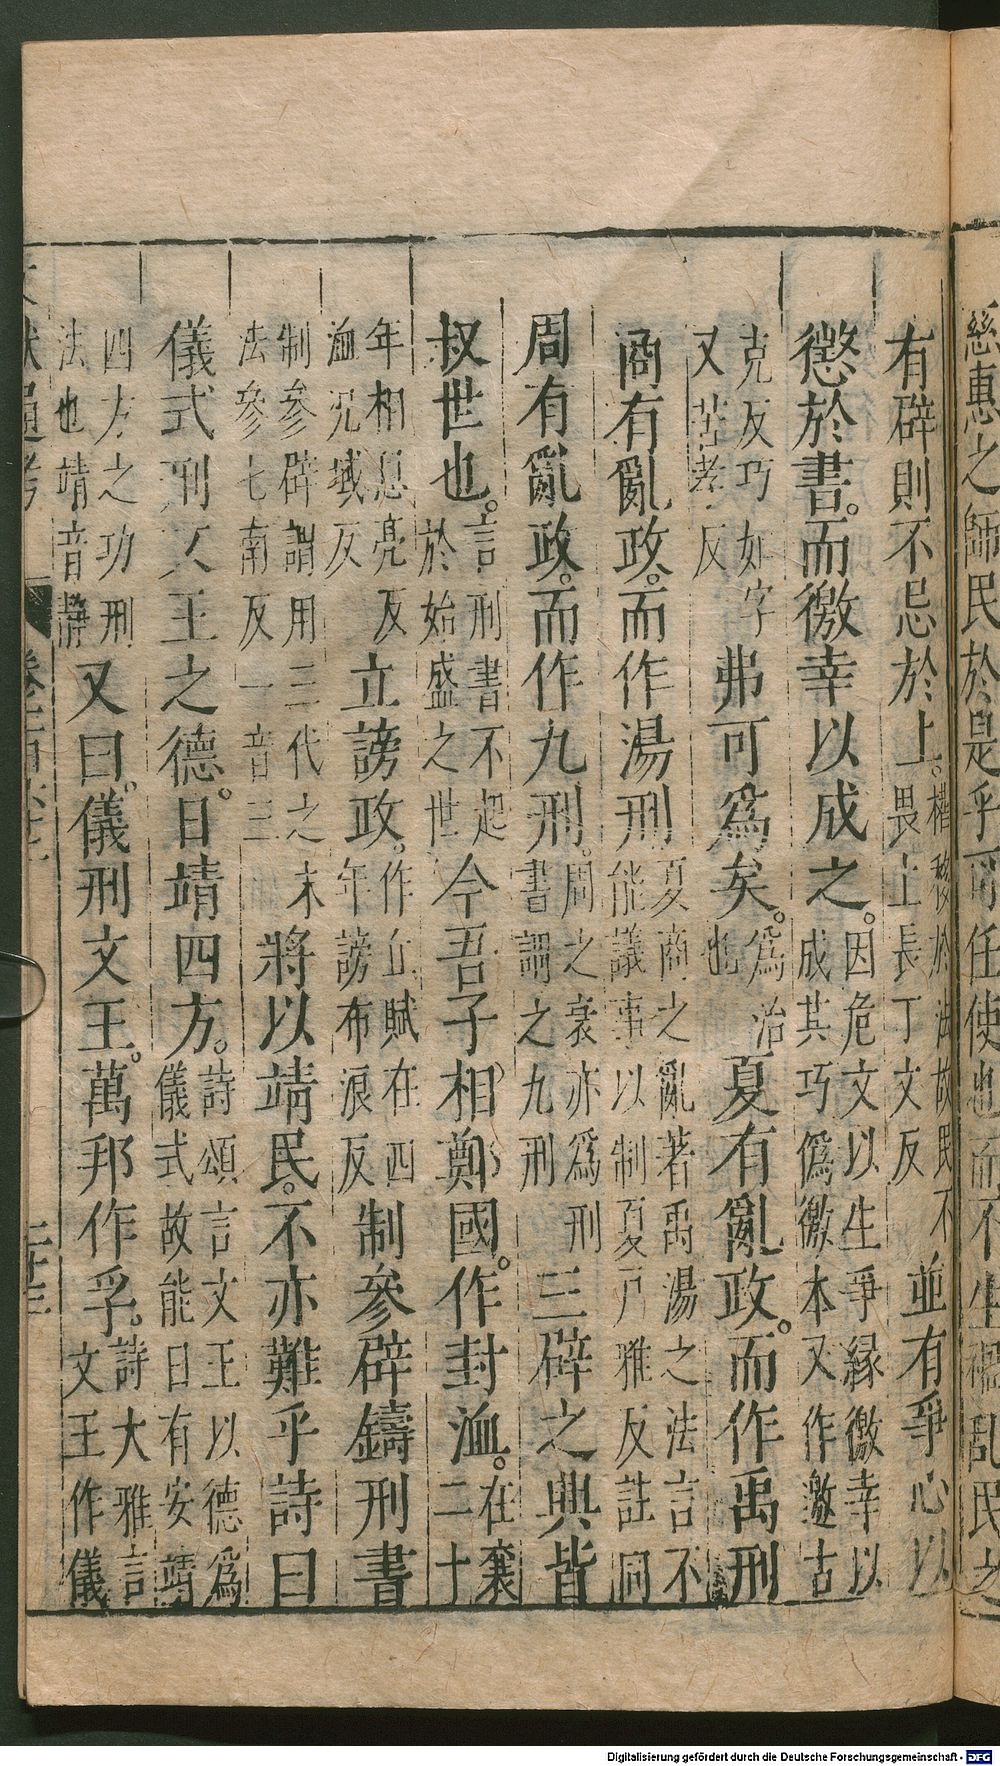 慈惠之師民於是乎可任使也而不生禍乱民之
有辟則不忌於上。權移於法故民不畏上長丁丈反並有爭心以
懲於書。而徼幸以成之。因危文以生爭緣徼幸以成其巧僞徼本又作邀古
克反巧如字又苦孝反弗可爲矣。爲治也夏有亂政。而作禹刑
商有亂政。而作湯刑夏商之亂著禹湯之法言不能議事以制夏戸雅反註同
周有亂政。而作九刑。周之衰亦爲刑書謂之九刑三辟之興皆
叔世也。言刑書不起於始盛之世今吾子相鄭國。作封洫。在襄二十
年相息亮反洫況域反立謗政。作丘賦在四年謗布浪反制參辟鑄刑書
制參辟謂用三代之末法參七南反一音三將以靖民。不亦難乎詩曰
儀式刑文王之德。日靖四方。詩頌言文王以德爲儀式故能日有安靖
四方之功刑法也靖音靜又曰。儀刑文王。萬邦作孚。詩大雅言文王作儀
文獻通考
Digitalisierung gefördert durch die Deutsche Forschungsgemeinschaft - DFG